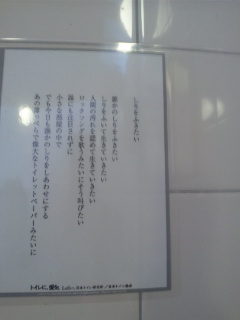 しりをふきたい
誰かのしりをふきたい
しりをふいて生きていきたい
人間の汚れを認めて生きていきたい
ロックソングを歌うみたいにそう叫びたい
誰にも注目されずに
小さな部屋の中で
でも今日も誰かのしりをしあわせにする
あの薄っぺらで偉大なトイレットペーパーみたいに
トイレに、愛を。